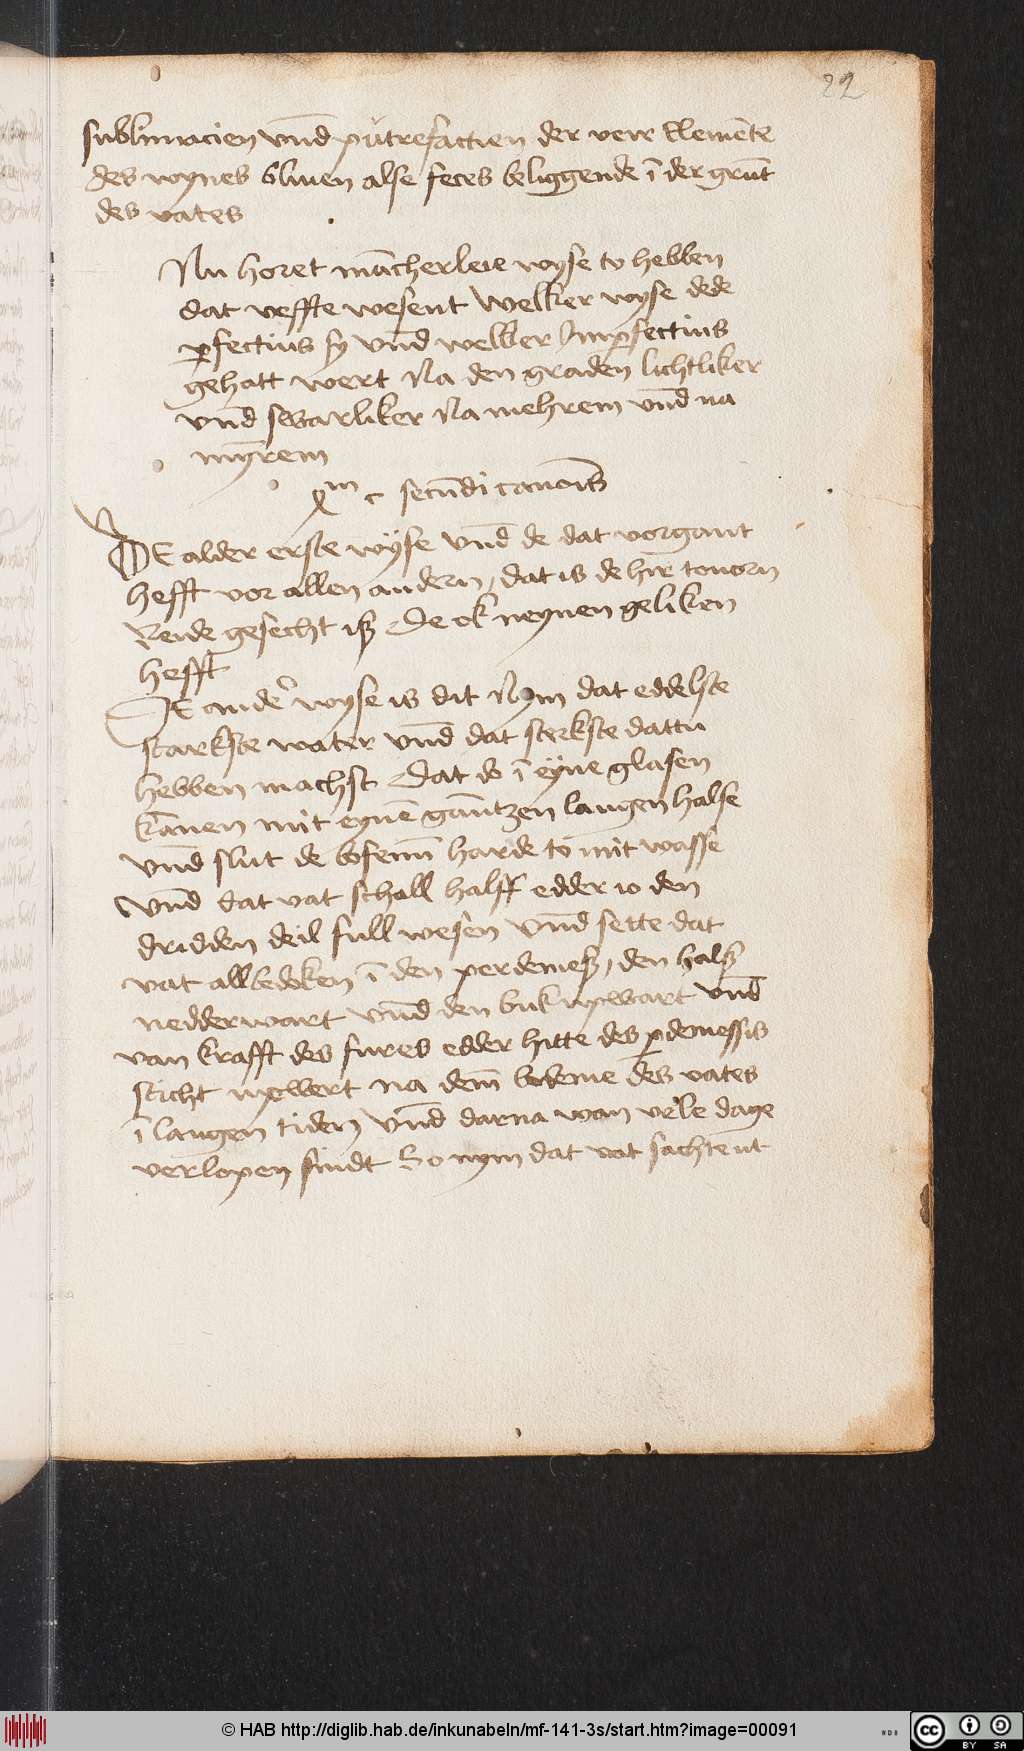 22
sublimacien vnd putrefactien der veir Elemēte
des wynes bliuen alse feces beliggende ī der grūt
des vates
Nu horet mācherleie wyse to hebben
dat veffte wesent Welker wyse dede
ꝑfectius sy vnd welker Imꝑfectius
gehatt wert Na den graden lichtliker
vnd swarliker Na mehrem vnd na
mynrem
xᵐ c secūdi canonis
De alder erste wyse vnd de dat vorgant
hefft vor allen andern, dat is de hir touorn
Rede gesecht iß De ok neynen geliken
hefft
De ander wyse is dit Nym dat eddelste
starkste water vnd dat sterkste dattu
hebben machst Dat do ī eyne glasen
kānen mit eynē gantzen langen halse
vnd slut de bofenn harde to mit wasse
vnd dat vat schall halff edder io den
dridden deil full wesen vnd sette dat
vat all bedeken ī den perdemeß, den halß
nedderwart vnd den buk upwart vnd
van krafft des fures edder hitte des ꝑdemessis
sticht upwert na dem bodeme des vates
ī langen tiden vnd darna wan vele dage
verlopen sindt So nym dat vat sachte ut
© HAB http://diglib.hab.de/inkunabeln/mf-141-3s/start.htm?image=00091
WDB
cc
BY SA